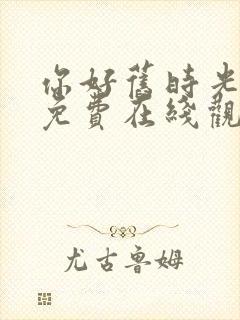 你好舊時光
免費在綫觀
尤古魯姆